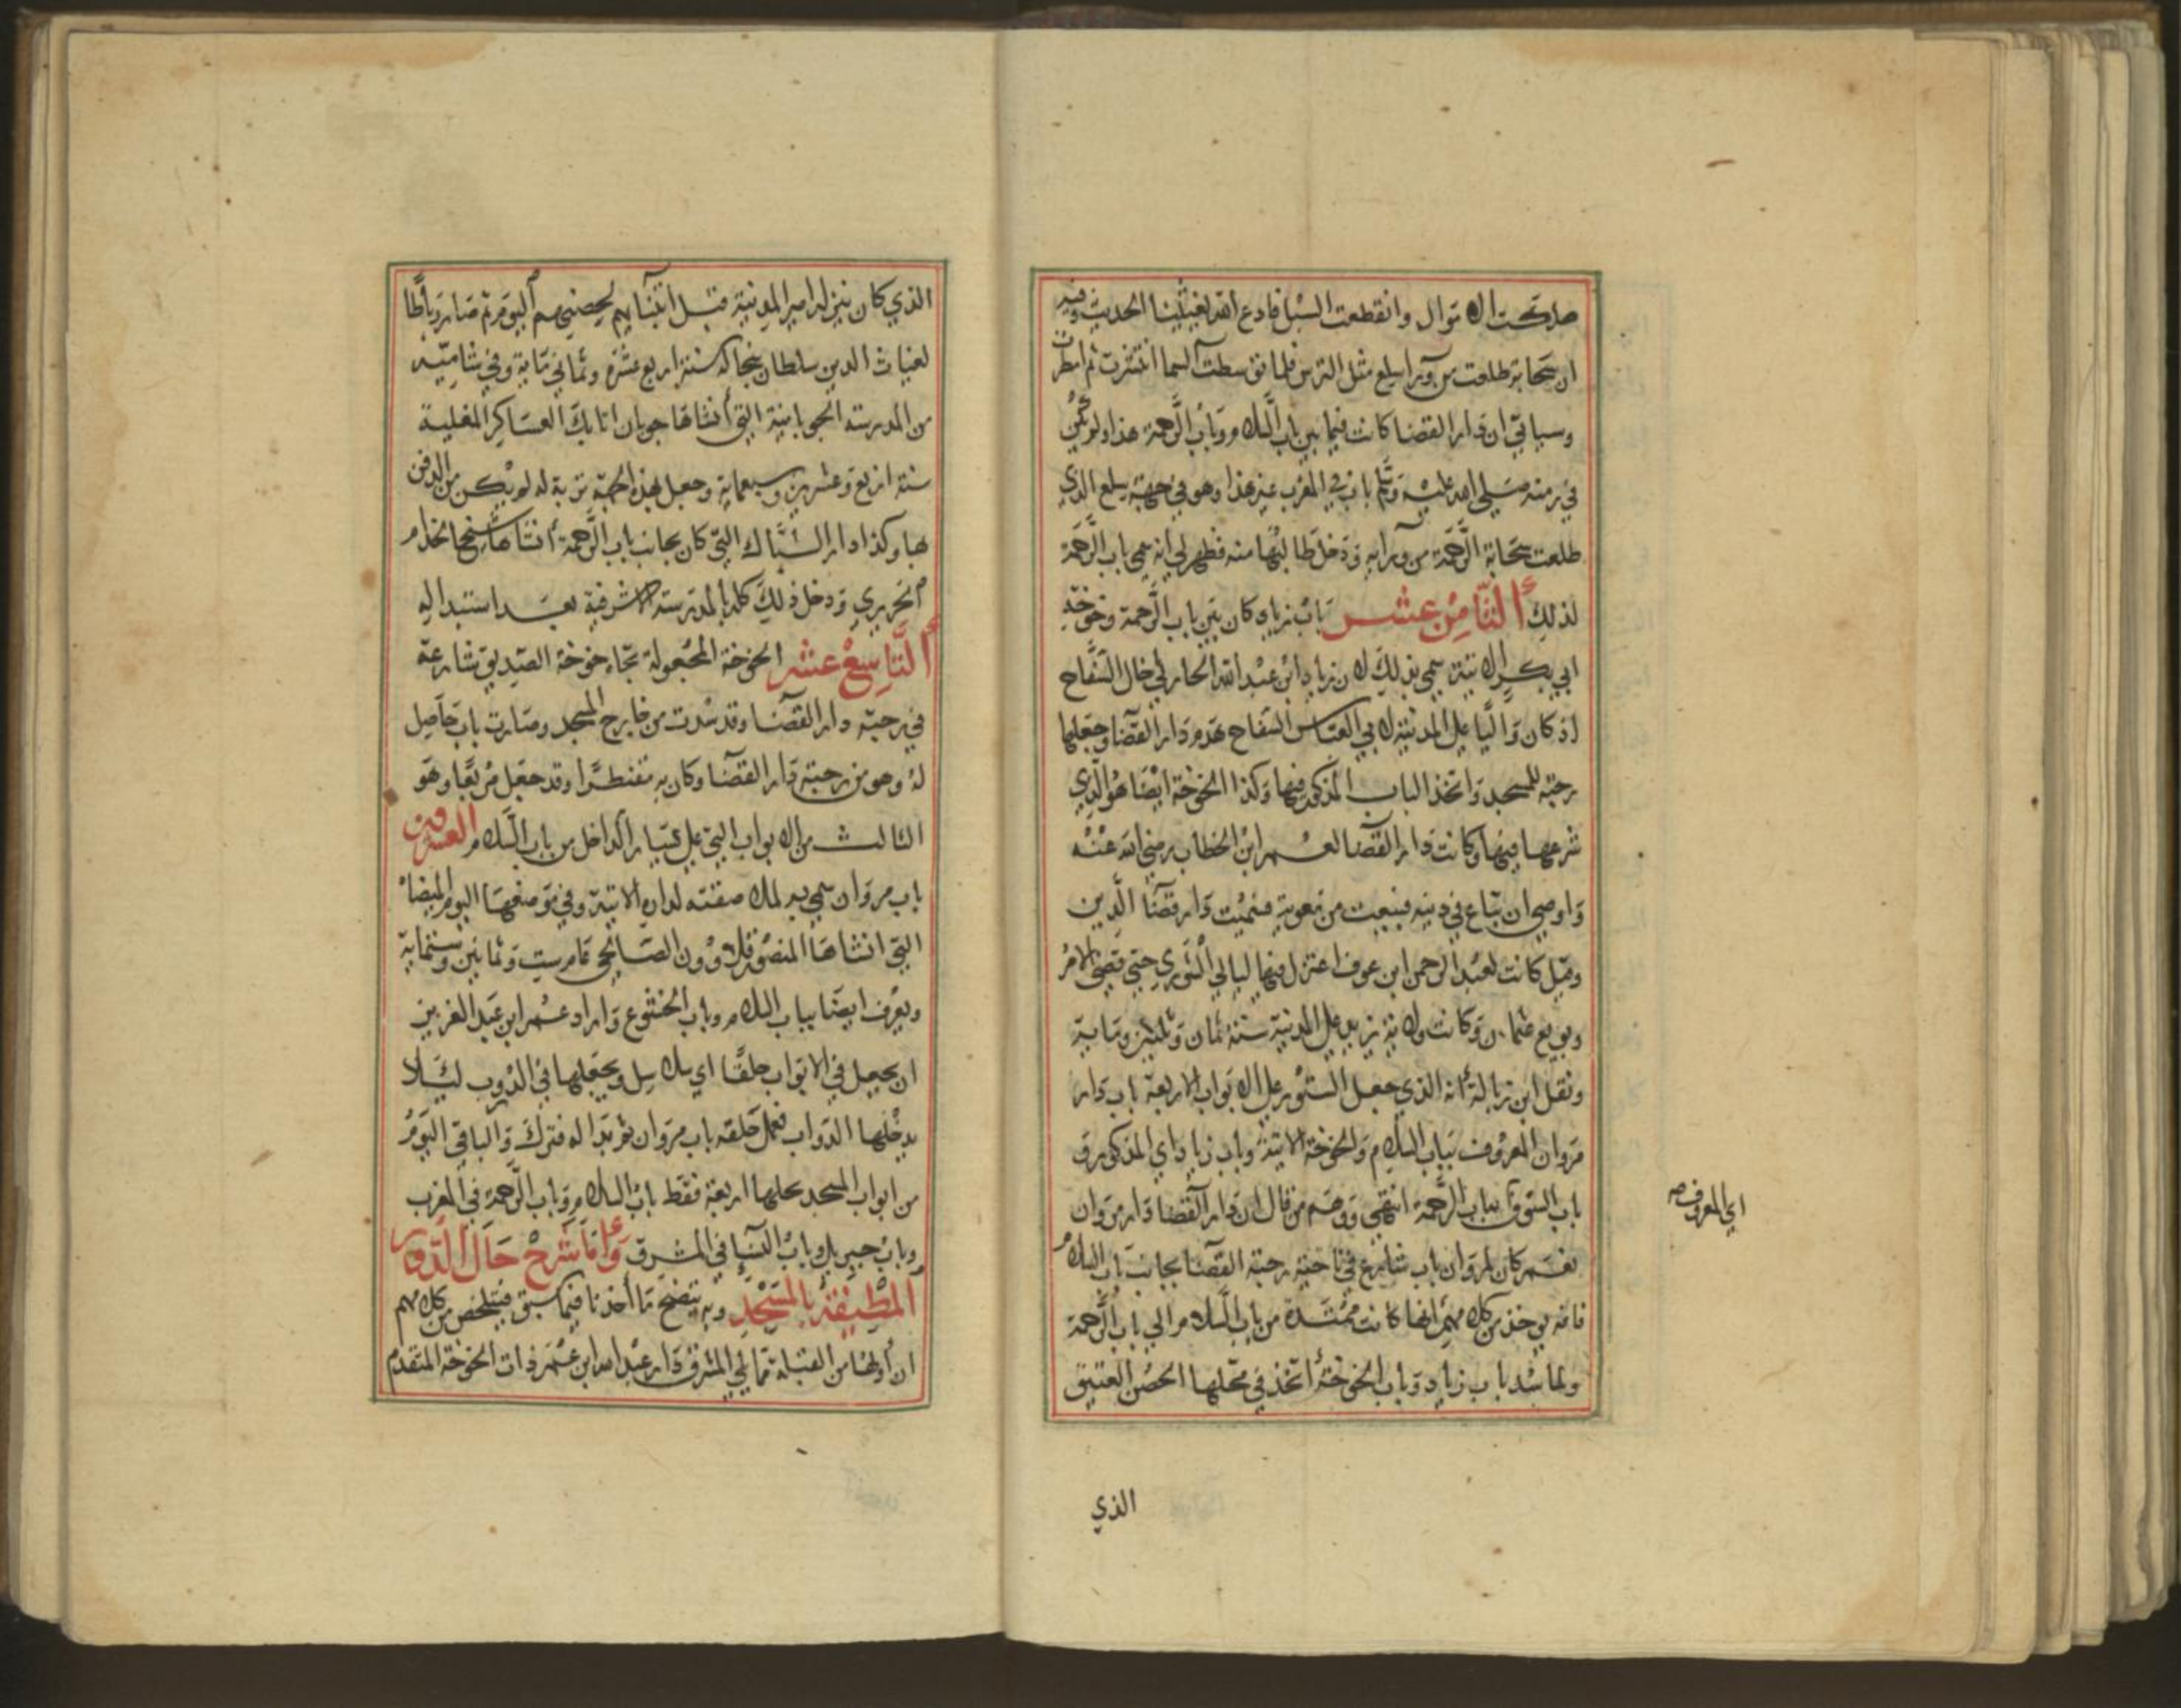 هلكت الاموال وانقطعت السبل فادع الله يغيثنا الحديث وفيه
ان سحابة طلعت من وراء سلع مثل الترس فلما توسطت السما انتشرت ثم امطرت
وسياتي ان دار القضا كانت فيما بين باب السلام وباب الرحمة هذا ولم يكن
في زمنه صلى الله عليه وسلم باب في المغرب غير هذا وهو في جهة سلع الذي
طلعت سحابة الرحمة من ورايه ودخل طالبها منه فظهر لي انه سمي باب الرحمة
لذلك الثامن عشر باب زياد كان بين باب الرحمة وخوخة
ابي بكر الاتية سمي بذلك لان زياد ابن عبد الله الحارثي خال السفاح
اذ كان واليا على المدينة لابي العباس السفاح هدم دار القضا وجعلها
رحبة للمسجد واتخذ الباب المذكور فيها وكذا الخوخة ايضا هو الذي
شرعها فيها وكانت دار القضا لعمر ابن الخطاب رضي الله عنه
واوصى ان تباع في دينه فبيعت من معوية فسميت دار قضا الدين
وقيل كانت لعبد الرحمن ابن عوف اعتزل فيها ليالي الشورى حتى قضى الامر
وبويع عثمان وكانت ولاية زياد على المدينة سنة ثمان وثلثين ومماية
ونقل ابن زبالة انه الذي جعل الستور على الابواب الاربعة باب دار
مروان المعروف بباب السلام والخوخة الاتية وباب زياد اي المذكور و
باب السوق بباب الرحمة انتهى ووهم من قال ان دار القضا دار مروان
نعم كان لمروان باب شارع في ناحية رحبة القضا بجانب باب السلام
فانه يوخذ من كلامهم انها كانت ممتدة من باب السلام الى باب الرحمة
ولما سد باب زياد وباب الخوخة اتخذ في محلها الحصن العتيق
اي المعروف صه
الذي
الذي كان ينزله امير المدينة قبل ابتنايهم لحصنهم اليوم ثم صار رباطا
لغياث الدين سلطان بنجاله سنة اربع عشرة وثماني ماية وفي شاميه
من المدرسة الجوبانية التي انشاها جوبان اتابك العساكر المغلية
سنة اربع وعشرين وسبعماية وجعل بهذه الجهة تربة له لم يمكن من الدفن
بها وكذا دار الشباك التي كان بجانب باب الرحمة انشاها شيخ الخدام
الحريري ودخل ذلك كله بالمدرسة الاشرفية بعد استبداله
التاسع عشر الخوخة المجعولة تجاه خوخة الصديق شارعة
في رحبة دار القضا وقد سدت من خارج المسجد وصارت باب حاصل
له وهو من رحبة دار القضا وكان به مقنطرا وقد جعل مربعا وهو
الثالث من الابواب التي على يسار الداخل من باب السلام العشرين
باب مروان سمي به لملاصقته لداره الاتية وفي موضعها اليوم الميضاة
التي انشاها المنصور قلاوون الصالحي عام ست وثمانين وستماية
ويعرف ايضا بباب السلام وباب الخشوع واراد عمر ابن عبد العزيز
ان يجعل في الابواب حلقا اي سلاسل ويجعلها في الدروب ليلا
يدخلها الدواب فعمل حلقه باب مروان ثم بدا له فترك والباقي اليوم
من ابواب المسجد بحلها اربعة فقط باب السلام وباب الرحمة في المغرب
وباب جبريل وباب النسا في المشرق واما شرح حال الدور
المطيفة بالمسجد وبه يتضح ما اخذنا فيما سبق فيتلخص من كلامهم
ان اولها من القبلة مما يلي المشرق دار عبد الله ابن عمر ذات الخوخة المتقدم